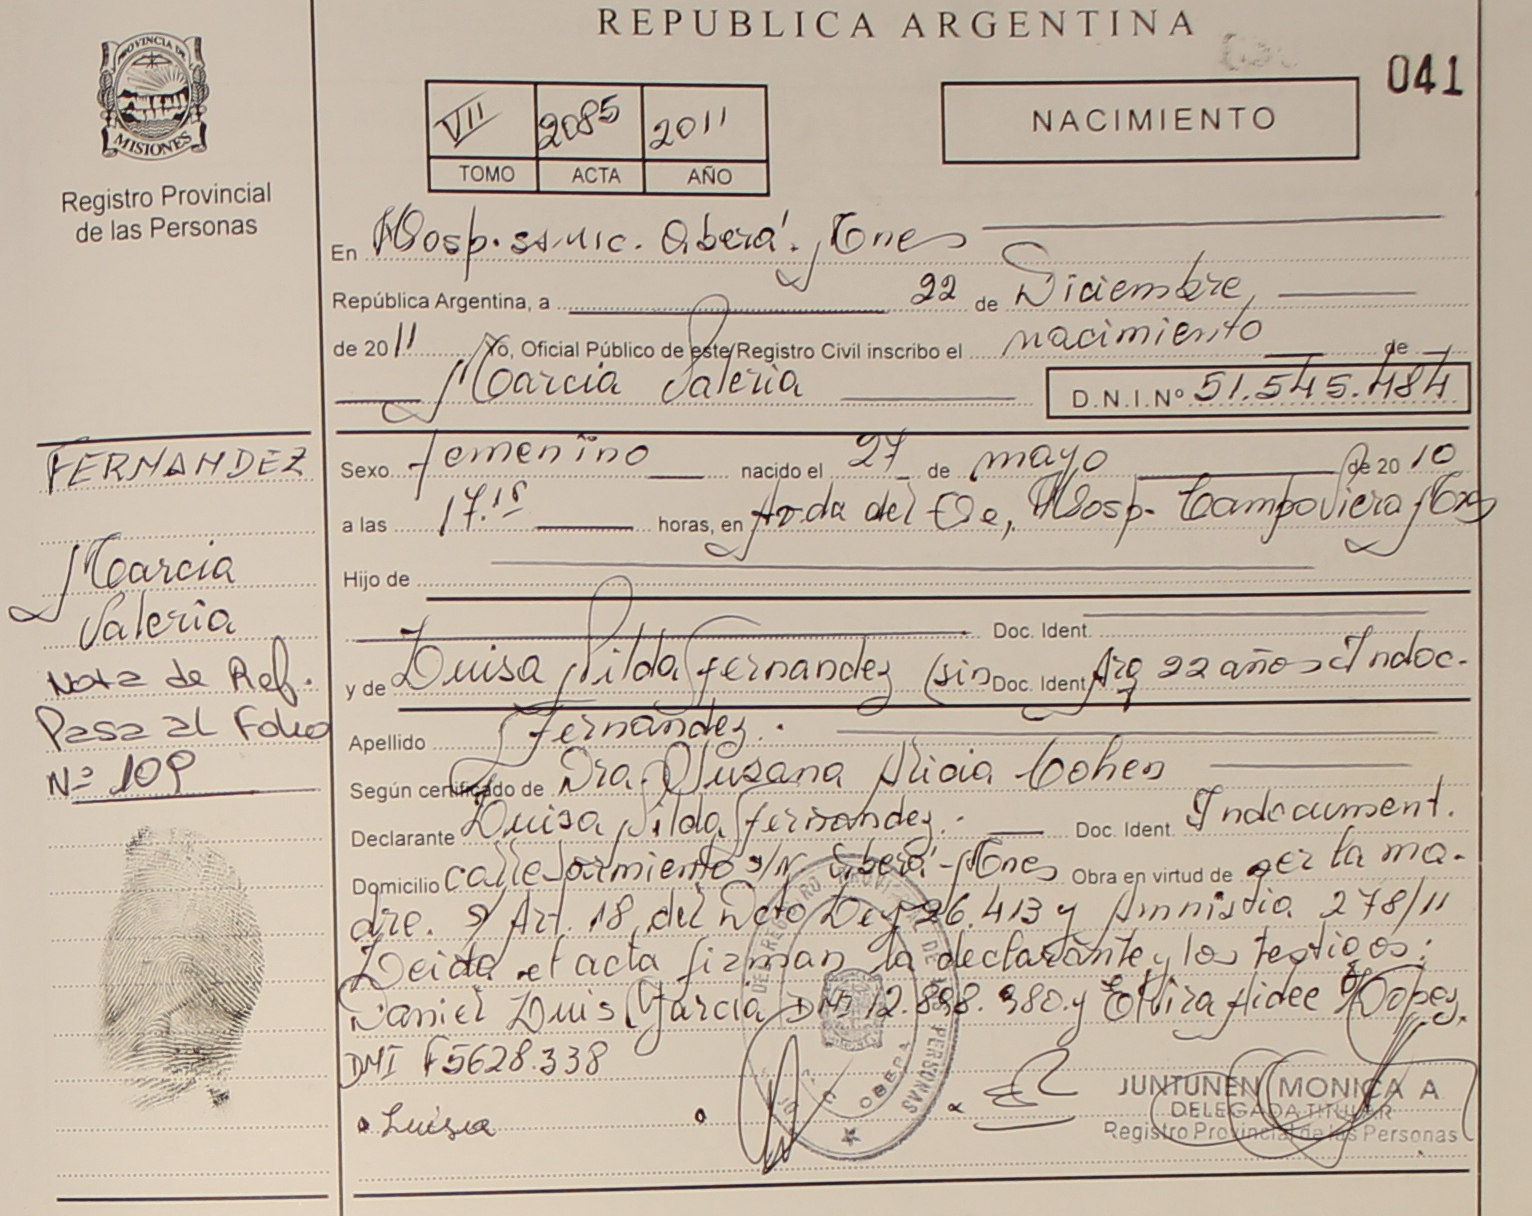 REPUBLICA ARGENTINA
041
PROVINCIA DE
MISIONES
Registro Provincial
de las Personas
VII 2085 2011
TOMO ACTA AÑO
NACIMIENTO
En Hosp. SAMIC. Oberá. Mnes
República Argentina, a 22 de Diciembre,
de 2011 Yo, Oficial Público de este Registro Civil inscribo el nacimiento de
Marcia Valeria D.N.I.Nº 51.545.484
Sexo femenino nacido el 27 de mayo de 2010
a las 17.15 horas, en Avda del Te, Hosp. Campo Viera Mnes
Hijo de
Doc. Ident.
y de Luisa Hilda Fernandez (sin Doc. Ident. Arg 22 años Indoc.
Apellido Fernandez.
Según certificado de Dra. Susana Alicia Cohen
Declarante Luisa Hilda Fernandez. Doc. Ident. Indocument.
Domicilio calle Sarmiento s/n Oberá-Mnes Obra en virtud de ser la ma-
dre. s/ Art. 18 del Dcto Ley 26.413 y Amnistia 278/11
Leida el acta firman la declarante y los testigos:
Daniel Luis Garcia DNI 12.898.980. y Elvira Aidee Lopez.
DNI F5628.338
Luisa
JUNTUNEN MONICA A
DELEGADA TITULAR
Registro Provincial de las Personas
FERNANDEZ
Marcia
Valeria
Nota de Ref.
Pasa al Folio
Nº 109
DEL REGISTRO PROVINCIAL DE LAS PERSONAS
OBERA